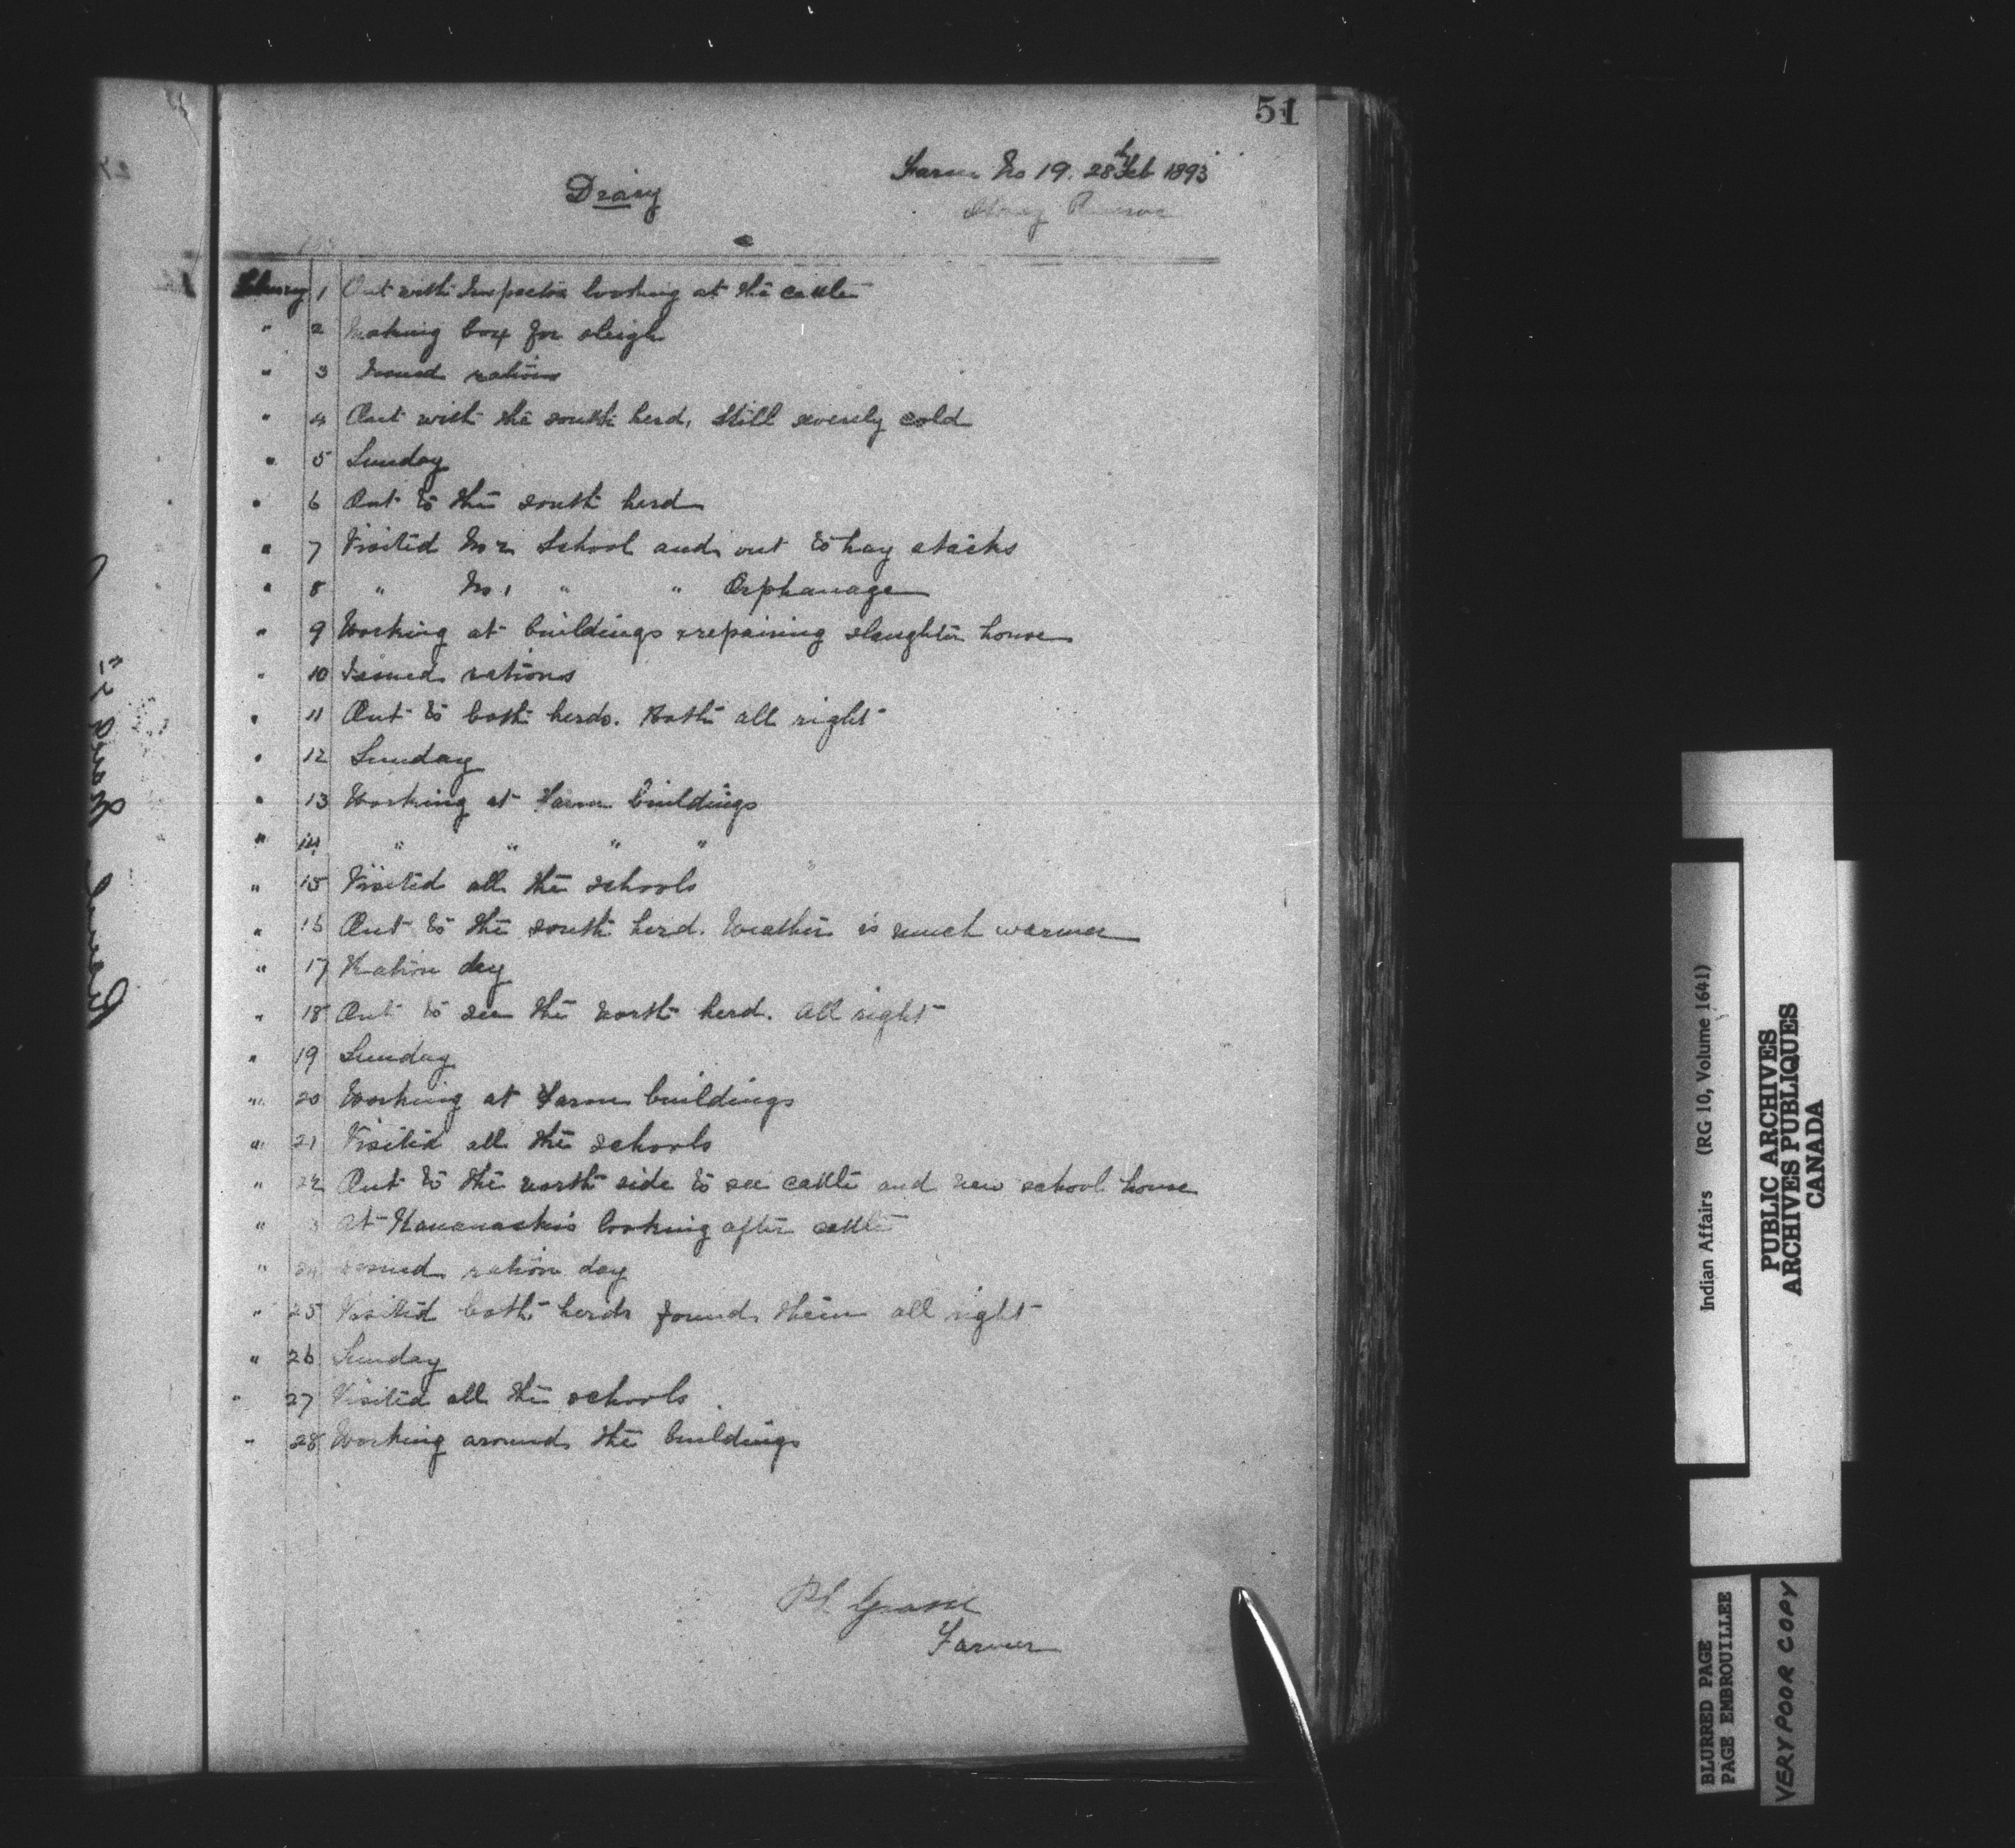 51
Farm No 19. 28th Feb 1893
Stoney Reserve
Diary
February 1 Out with Inspector looking at the cattle
" 2 Making box for sleigh
" 3 Issued rations
" 4 Out with the south herd, Still severely cold
" 5 Sunday
" 6 Out to the south herd
" 7 Visited No 2 School and out to hay stacks
" 8 " No 1 " " Orphanage
" 9 Working at buildings & repairing slaughter house
" 10 Issued rations
" 11 Out to both herds. Both all right
" 12 Sunday
" 13 Working at Farm buildings
" 14 " " " "
" 15 Visited all the schools
" 16 Out to the south herd. Weather is much warmer
" 17 Ration day
" 18 Out to see the north herd. all right
" 19 Sunday
" 20 Working at Farm buildings
" 21 Visited all the schools
" 22 Out to the north side to see cattle and new school house
" 3 At Kananaskis looking after cattle
" 24 Issued ration day
" 25 Visited both herds found them all right
" 26 Sunday
" 27 Visited all the schools
" 28 Working around the buildings
Farmer
Indian Affairs (RG 10, Volume 1641)
PUBLIC ARCHIVES
ARCHIVES PUBLIQUES
CANADA
BLURRED PAGE
PAGE EMBROUILLEE
VERY POOR COPY